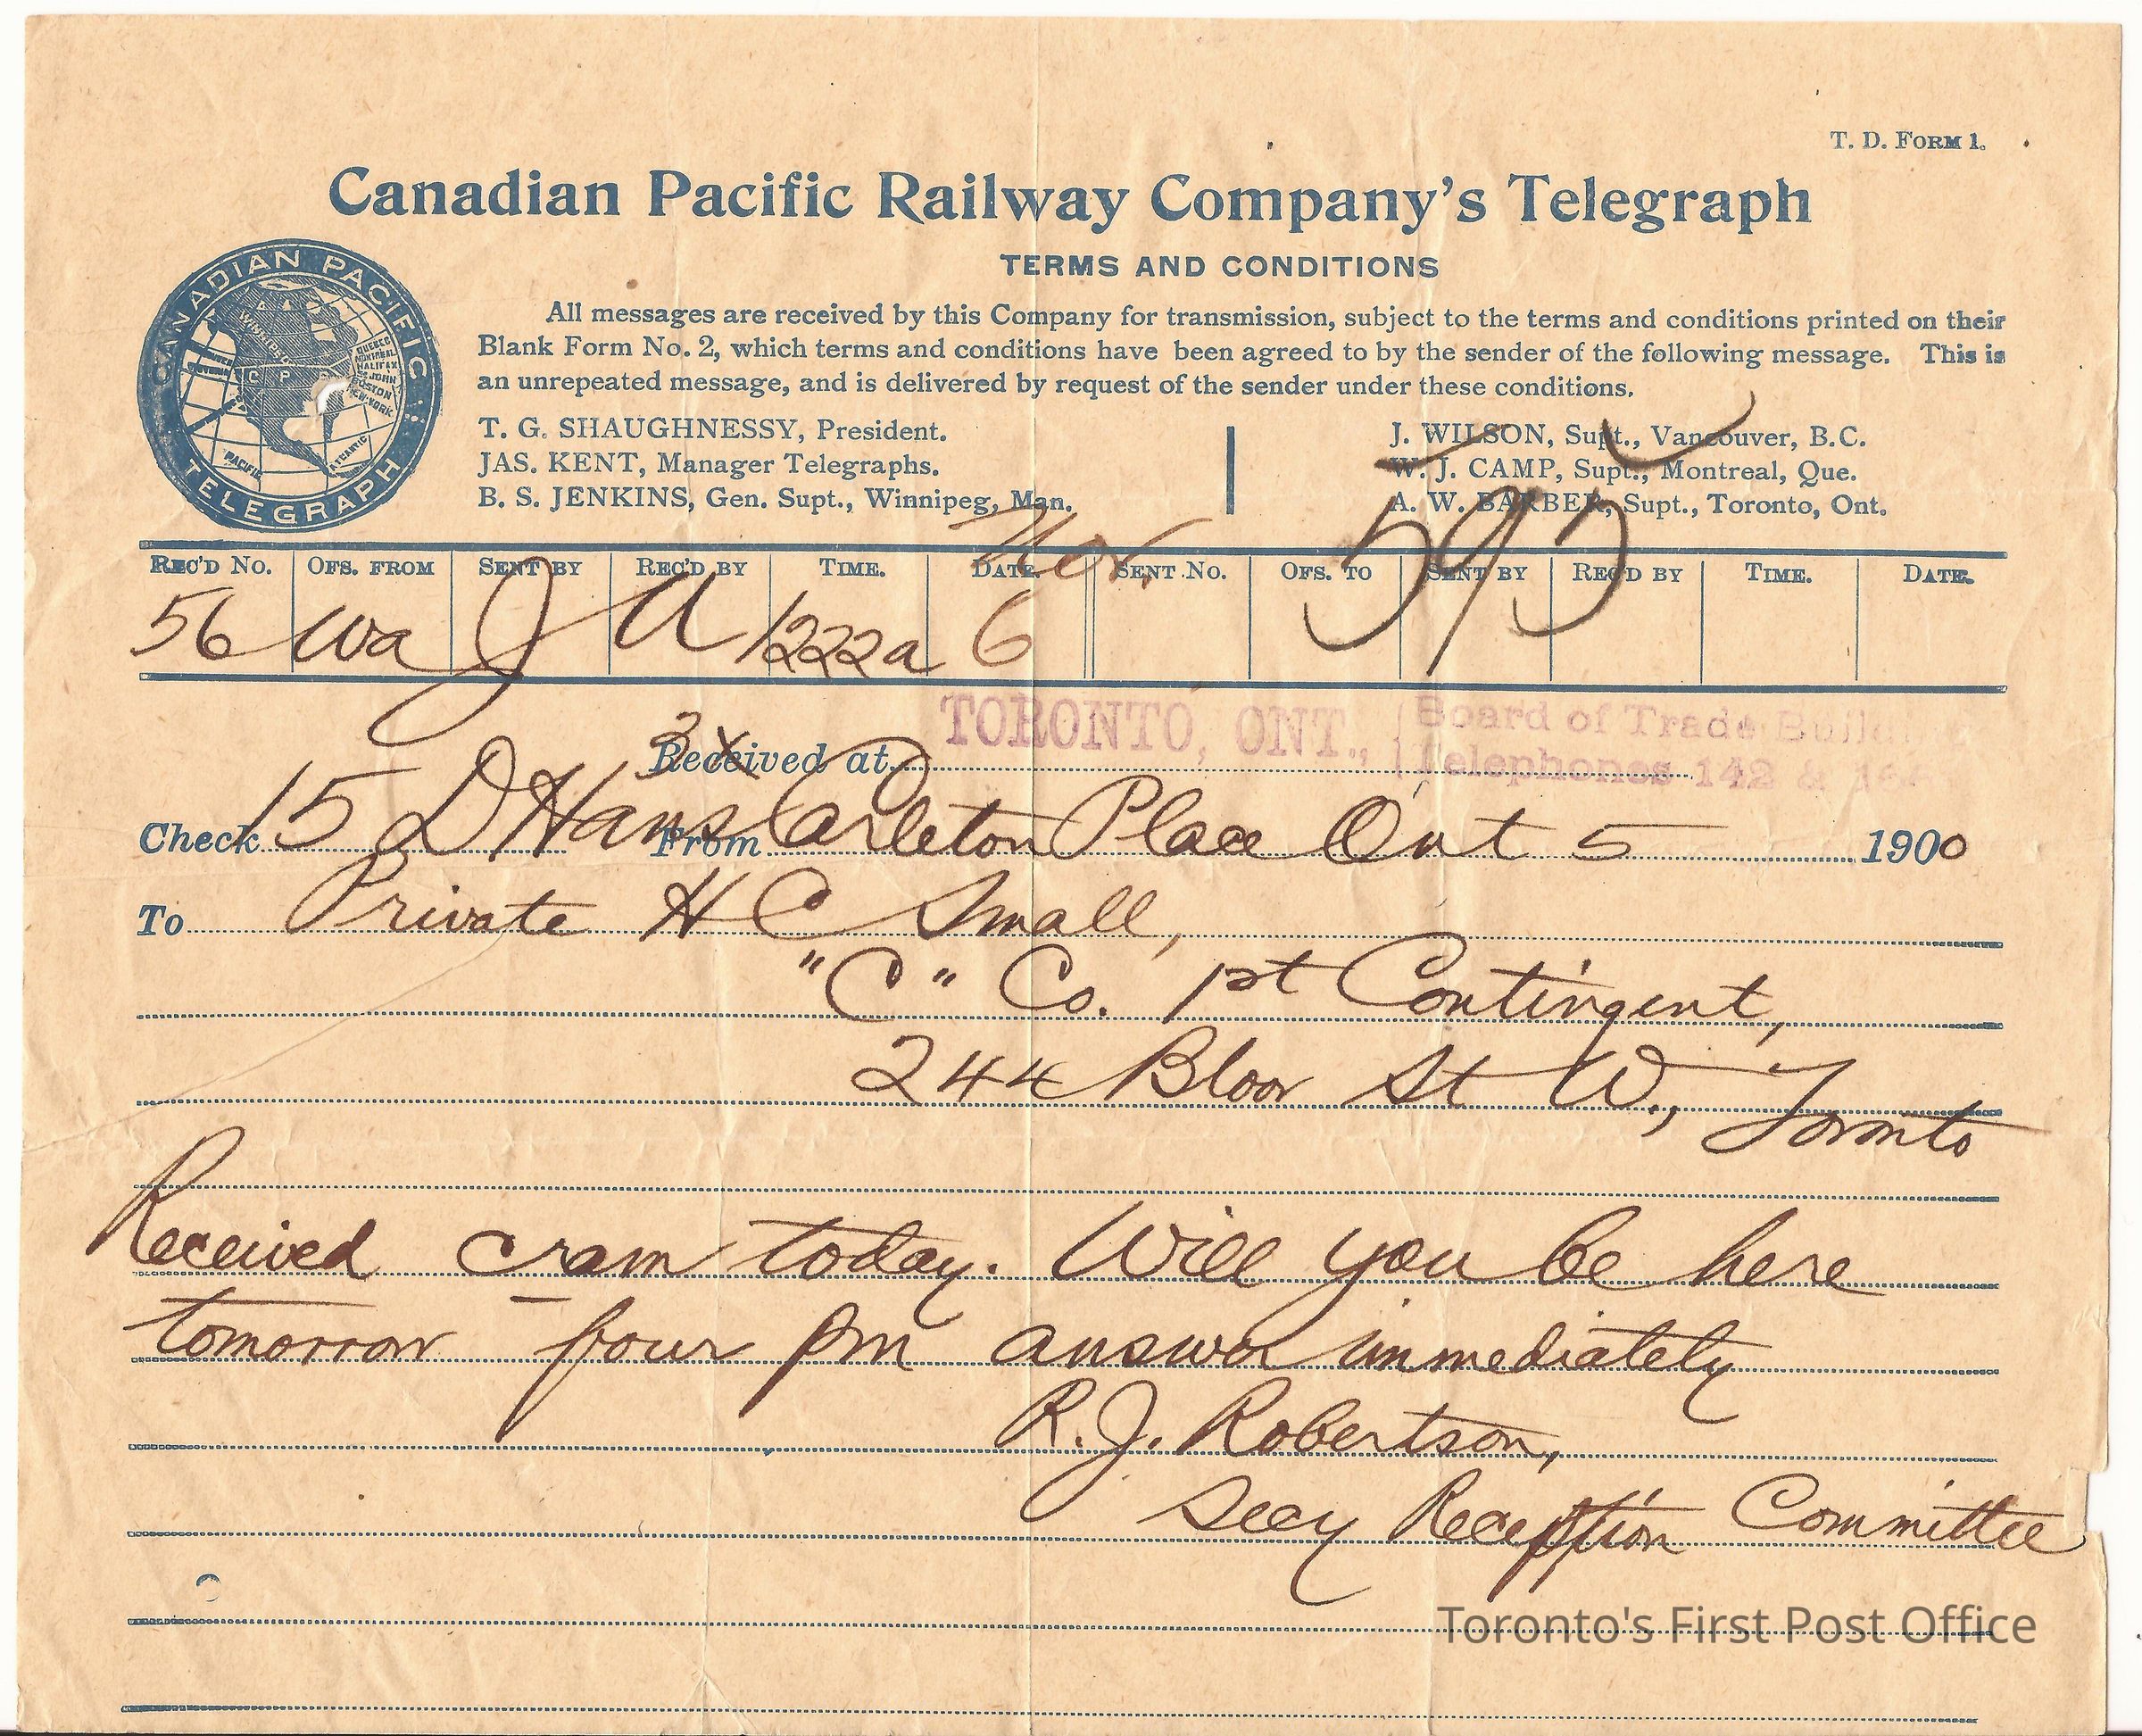 T. D. FORM 1.
Canadian Pacific Railway Company's Telegraph
TERMS AND CONDITIONS
CANADIAN PACIFIC
TELEGRAPH
WINNIPEG
QUEBEC
MONTREAL
HALIFAX
ST JOHN
BOSTON
NEW-YORK
C P
PACIFIC
ATLANTIC
All messages are received by this Company for transmission, subject to the terms and conditions printed on their
Blank Form No. 2, which terms and conditions have been agreed to by the sender of the following message. This is
an unrepeated message, and is delivered by request of the sender under these conditions.
T. G. SHAUGHNESSY, President.
JAS. KENT, Manager Telegraphs.
B. S. JENKINS, Gen. Supt., Winnipeg, Man.
J. WILSON, Supt., Vancouver, B.C.
W. J. CAMP, Supt., Montreal, Que.
A. W. BARBER, Supt., Toronto, Ont.
Nov.
REC'D No. OFS. FROM SENT BY REC'D BY TIME. DATE. SENT No. OFS. TO SENT BY REC'D BY TIME. DATE.
56 Wa J A 1222a 6
Received at TORONTO, ONT., Board of Trade
Telephones 142 &
3x
Check 15 DH From Carleton Place Ont 5 1900
To Private H C Small,
"C" Co. 1st Contingent,
244 Bloor St W., Toronto
Received cram today. Will you be here
tomorrow four pm answer immediately
R. J. Robertson,
Secy Reception Committee
Toronto's First Post Office